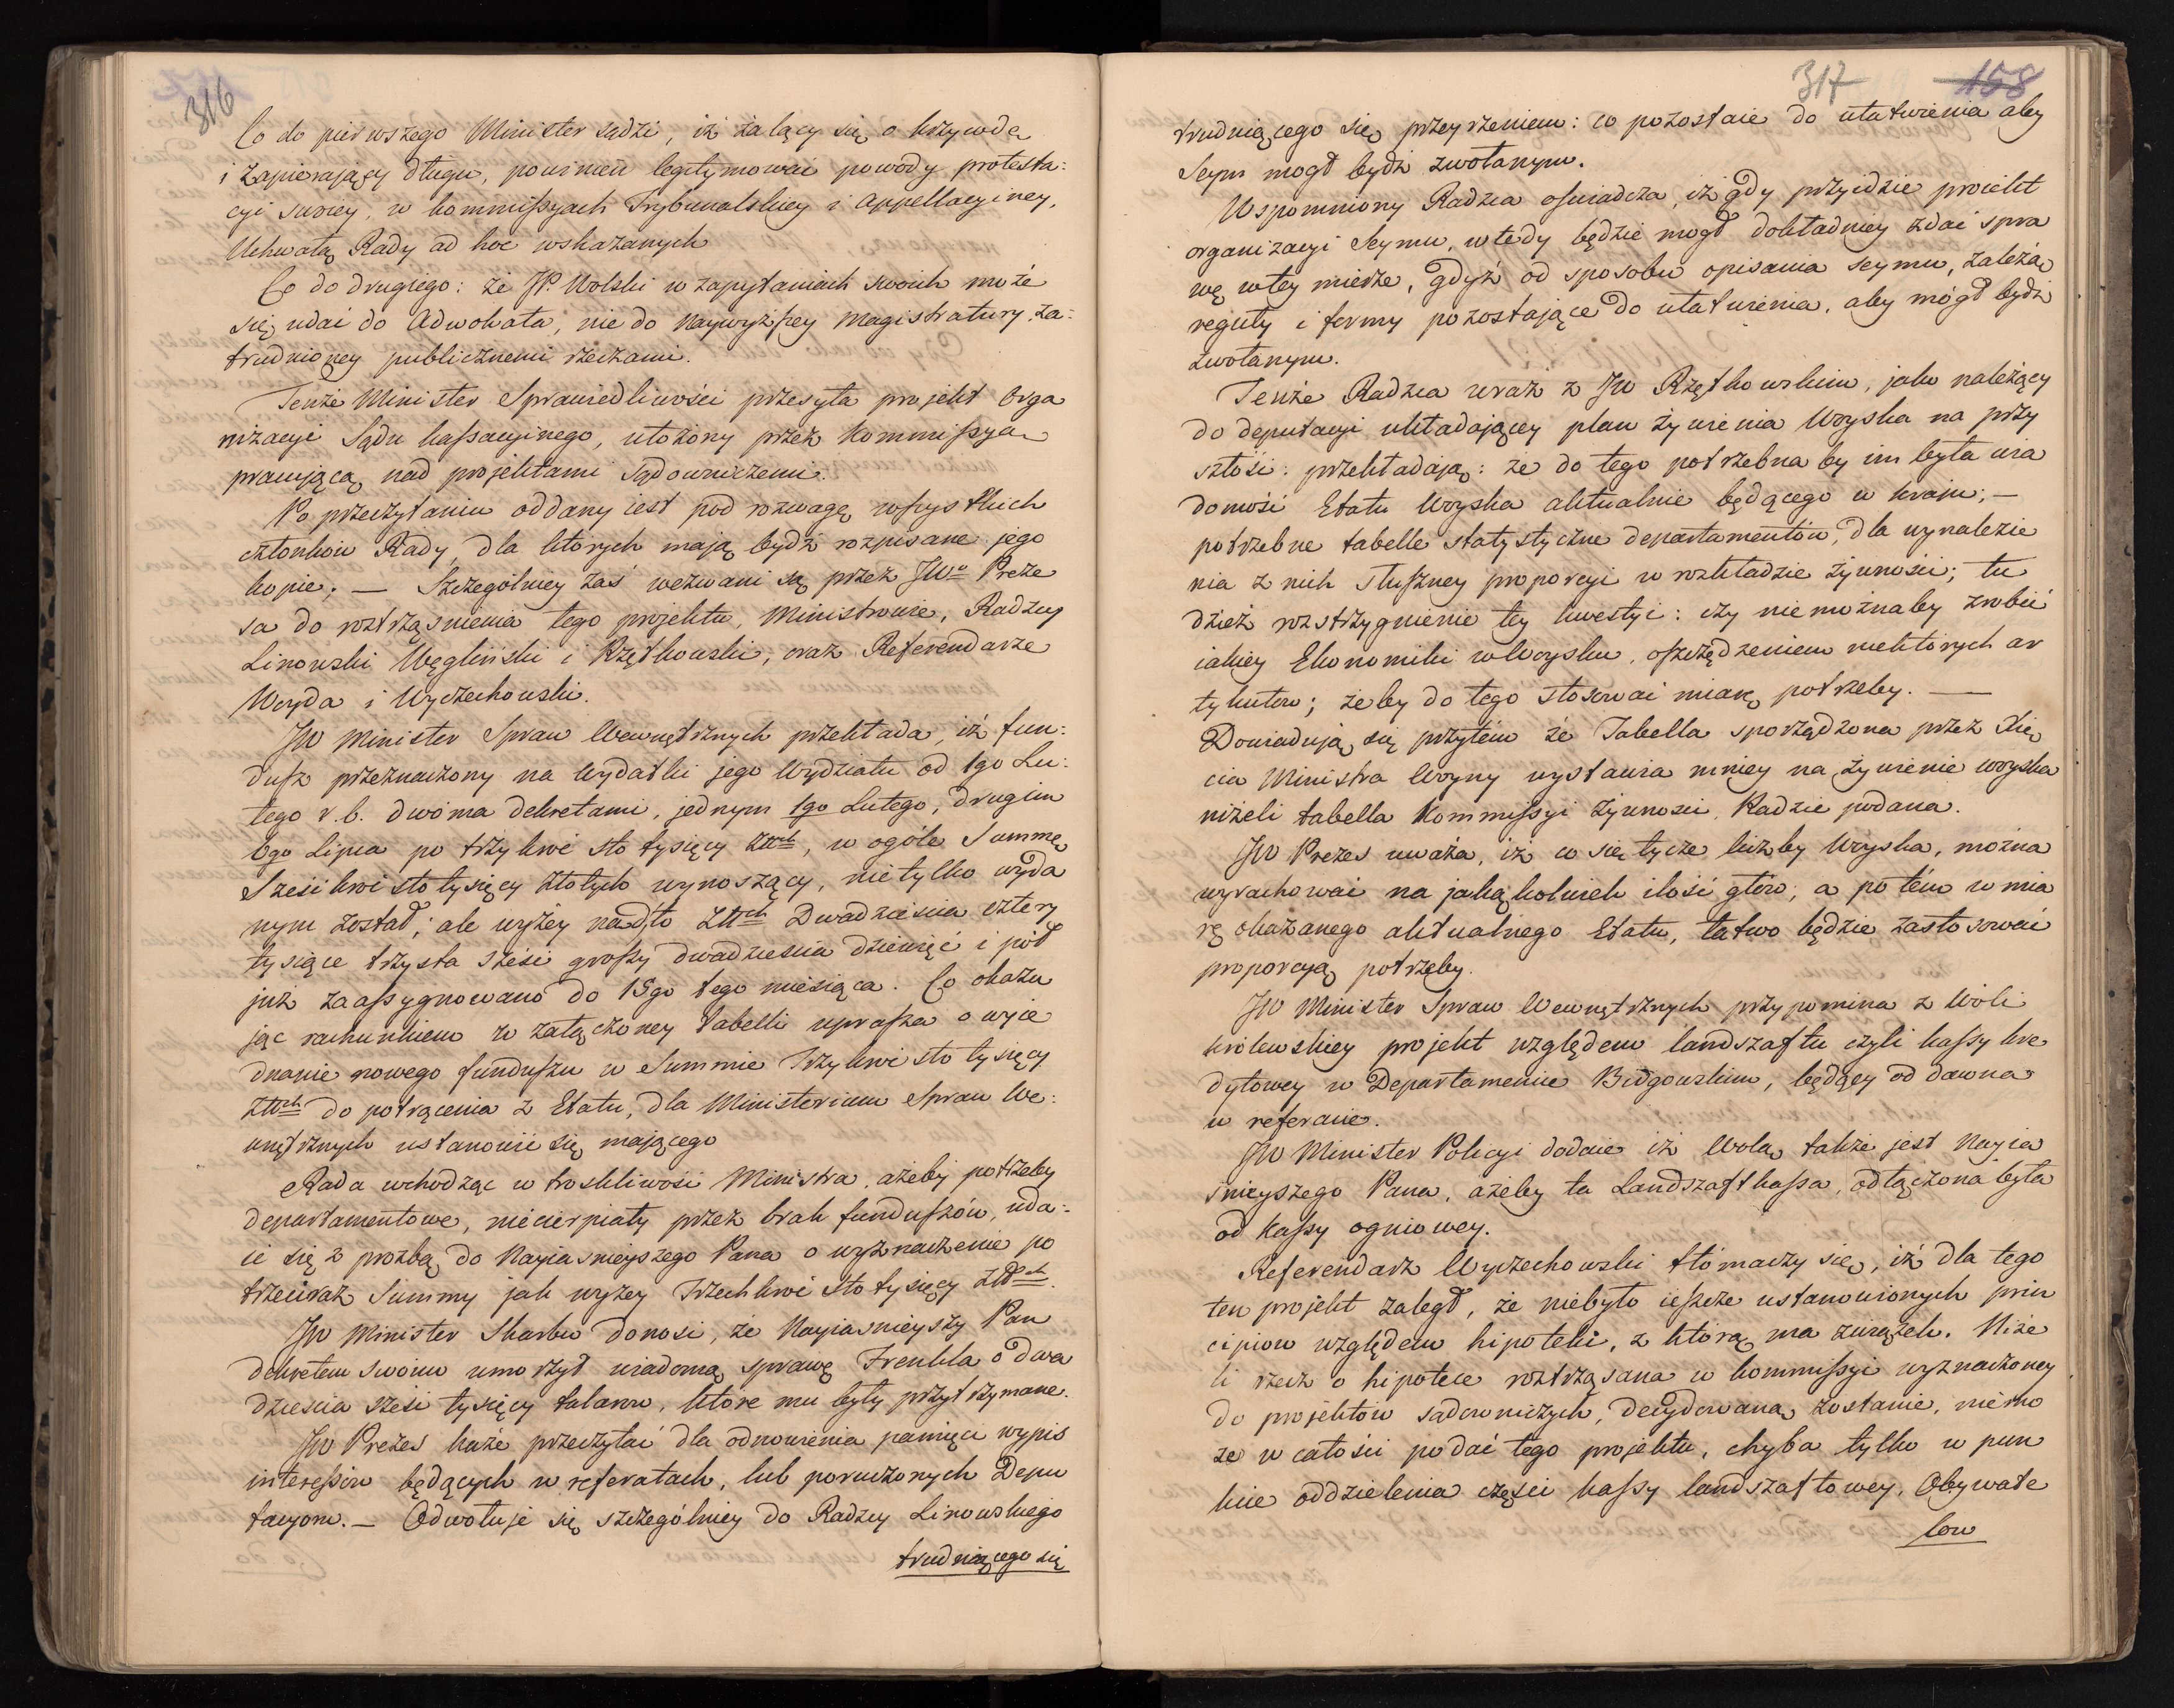 316
Co do pierwszego Minister sądzi, iż żalący się o krzywdę
i zapierający długu, powinien legitymować powody protesta:
cyi swoiey, w kommissyach Trybunalskiey i appellacyiney,
Uchwałą Rady ad hoc wskazanych
Co do drugiego: że JP. Wolski w zapytaniach swoich może
się udać do Adwokata, nie do naywyższey Magistratury, za:
trudnioney publicznemi rzeczami.
Tenże Minister Sprawiedliwości przesyła projekt Orga
nizacyi Sądu kassacyinego, ułożony przez Kommissyą
pracującą nad projektami sądowniczemi.
Po przeczytaniu oddany iest pod rozwagę wszystkich
członków Rady, dla których mają bydź rozpisane jego
kopie; — Szczególniey zaś wezwani są przez JWo Preze
sa do roztrząśnienia tego projektu, Ministrowie, Radzcy
Linowski, Węgliński i Rzętkowski, oraz Referendarze
Woyda i Wyczechowski.
JW Minister Spraw Wewnętrznych przekłada, iż fun:
dusz przeznaczony na wydatki jego Wydziału od 1go Lu:
tego r. b. dwoma dekretami, jednym 1go Lutego, drugim
6go Lipca po trzykroć sto tysięcy Złłch, w ogóle Summę
Sześćkroć sto tysięcy złotych wynoszący, nietylko wyda
nym został; ale wyżey nadto Złłch Dwadzieścia cztery
tysiące trzysta sześć groszy dwadzieścia dziewięć i pół
już zaassygnowano do 18go tego miesiąca. Co okazu
jąc rachunkiem w załączoney tabelli uprasza o wyie
dnanie nowego funduszu w Summie Trzykroć sto tysięcy
Złłch do potrącenia z Etatu, dla Ministerium Spraw We:
wnętrznych ustanowić się mającego
Rada wchodząc w troskliwość Ministra, ażeby potrzeby
departamentowe, niecierpiały przez brak funduszów, uda:
ie się z prozbą do Nayiaśnieyszego Pana o wyznaczenie po
trzeciraz Summy jak wyżey Trzechkroć sto tysięcy Złłch.
JW Minister Skarbu donosi, że Nayiaśnieyszy Pan
dekretem swoim umorzył wiadomą sprawę Frenkla o dwa
dzieścia sześć tysięcy talarów, które mu były przytrzymane.
JW Prezes każe przeczytać dla odnowienia pamięci wypis
interessów będących w referatach, lub poruczonych Depu
tacyom. — Odwołuje się szczególniey do Radzcy Linowskiego
trudniącego się
317 158
trudniącego się przeyrzeniem: co pozostaie do ułatwienia aby
Seym mogł bydź zwołanym.
Wspomniony Radzca oświadcza, iż gdy przyidzie proiekt
organizacyi Seymu, wtedy będzie mogł dokładniey zdać spra
wę wtey mierze, gdyż od sposobu opisania seymu, zależą
reguły i formy pozostające do ułatwienia, aby mógł bydź
zwołanym.
Tenże Radzca wraz z JW Rzętkowskim, jako należący
do deputacyi układającey plan żywienia Woyska na przy
szłość: przekładają: że do tego potrzebna by im była wia
domość Etatu Woyska aktualnie będącego w kraju; —
potrzebne tabelle statystyczne departamentów, dla wynalezie
nia z nich słuszney proporcyi w rozkładzie żywności; tu
dzież rozstrzygnienie tey kwestyi: czy niemożnaby zrobić
iakiey Ekonomiki w Woysku, oszczędzeniem niektórych ar
tykułów; żeby do tego stosować miarę potrzeby. —
Dowiadują się przytém że Tabella sporządzona przez Xię
cia Ministra Woyny wystawia mniey na żywienie woyska
niżeli tabella Kommissyi żywności, Radzie podana.
JW Prezes uważa, iż co się tycze liczby Woyska, można
wyrachować na jakąkolwiek ilość głów; a potém w mia
rę okazanego aktualnego Etatu, łatwo będzie zastosować
proporcyą potrzeby.
JW Minister Spraw Wewnętrznych przypomina z Woli
królewskiey projekt względem landszaftu czyli kassy kre
dytowey w Departamencie Bidgowskim, będący od dawna
w referacie.
JW Minister Policyi dodaie iż Wolą także jest Nayia
śnieyszego Pana, ażeby ta Landszaftkassa, odłączona była
od kassy ogniowey.
Referendarz Wyczechowski tłómaczy się, iż dla tego
ten projekt zaległ, że niebyło ieszcze ustanowionych prin
cipiow względem hipoteki, z którą ma związek. Niże
li rzecz o hipotece roztrząsana w kommissyi wyznaczoney
do projektów sądowniczych, decydowaną zostanie, niemo
że w całości podać tego projektu, chyba tylko w pun
kcie oddzielenia części kassy landszaftowey, Obywate
low